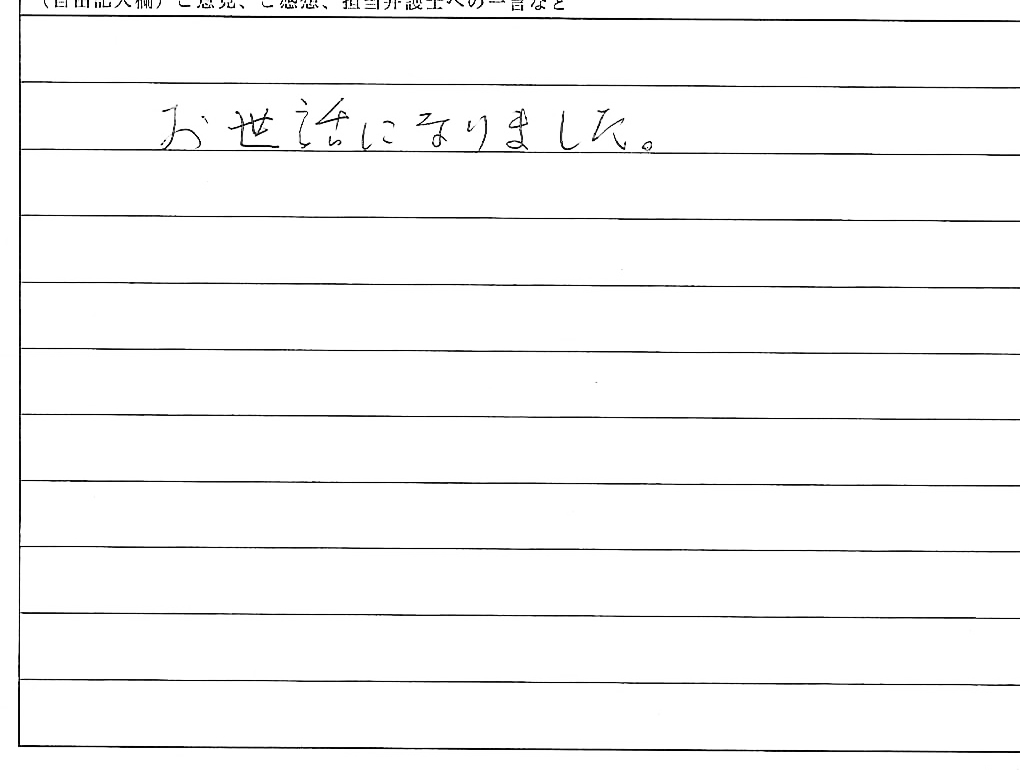 (自由記入欄)ご意見、ご感想、担当弁護士への一言など
お世話になりました。